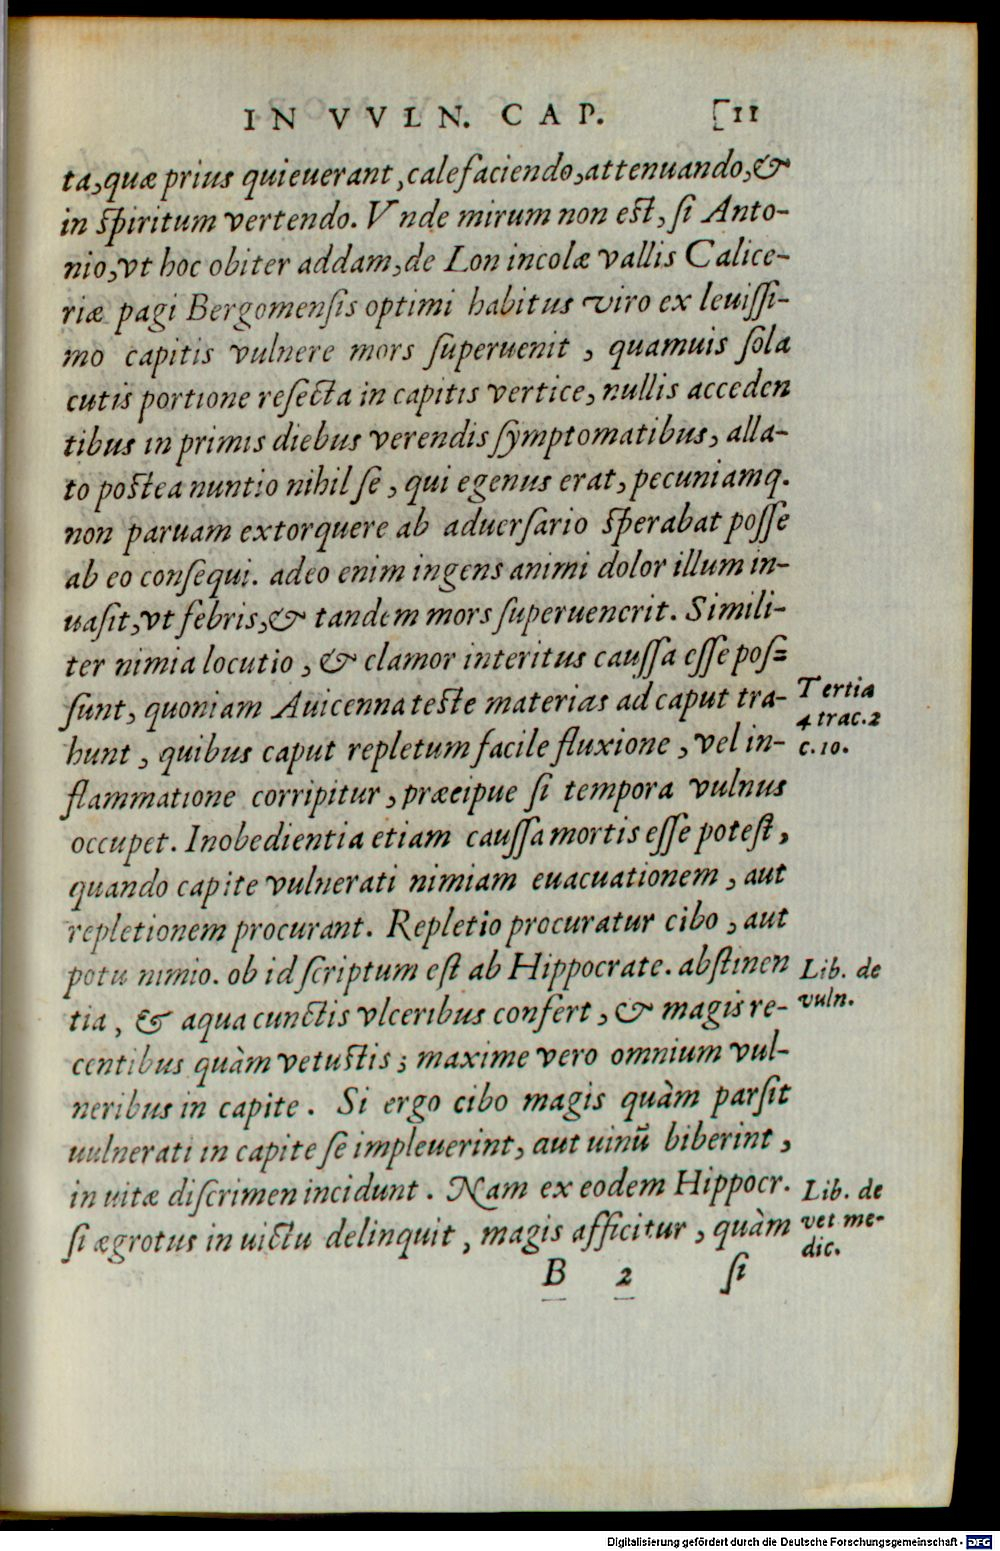 IN VVLN. CAP. [11
ta, quæ prius quieuerant, calefaciendo, attenuando, &
in spiritum vertendo. Vnde mirum non est, si Anto-
nio, vt hoc obiter addam, de Lon incolæ vallis Calice-
riæ pagi Bergomensis optimi habitus viro ex leuissi-
mo capitis vulnere mors superuenit, quamuis sola
cutis portione resecta in capitis vertice, nullis acceden
tibus in primis diebus verendis symptomatibus, alla-
to postea nuntio nihil se, qui egenus erat, pecuniamq.
non paruam extorquere ab aduersario sperabat posse
ab eo consequi. adeo enim ingens animi dolor illum in-
uasit, vt febris, & tandem mors superuenerit. Simili-
ter nimia locutio, & clamor interitus caussa esse pos=
sunt, quoniam Auicenna teste materias ad caput tra-
Tertia
4 trac. 2
c. 10.
hunt, quibus caput repletum facile fluxione, vel in-
flammatione corripitur, præcipue si tempora vulnus
occupet. Inobedientia etiam caussa mortis esse potest,
quando capite vulnerati nimiam euacuationem, aut
repletionem procurant. Repletio procuratur cibo, aut
potu nimio. ob id scriptum est ab Hippocrate. abstinen
Lib. de
vuln.
tia, & aqua cunctis vlceribus confert, & magis re-
centibus quàm vetustis; maxime vero omnium vul-
neribus in capite. Si ergo cibo magis quàm par sit
uulnerati in capite se impleuerint, aut uinũ biberint,
in uitæ discrimen incidunt. Nam ex eodem Hippocr.
Lib. de
vet me-
dic.
si ægrotus in uictu delinquit, magis afficitur, quàm
B 2 si
Digitalisierung gefördert durch die Deutsche Forschungsgemeinschaft - DFG